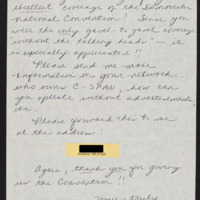 excellent coverage of the Democratic
National Convention! Since you
were the only, gavel-to-gavel coverage
without the talking heads" — it
is especially appreciated!!
"Please send me more
information on your network
who owns C-SPAN, how can
you operate without advertisements,
etc.
Please forward this to me
at this address
Again, thank you for giving
us the Convention!!